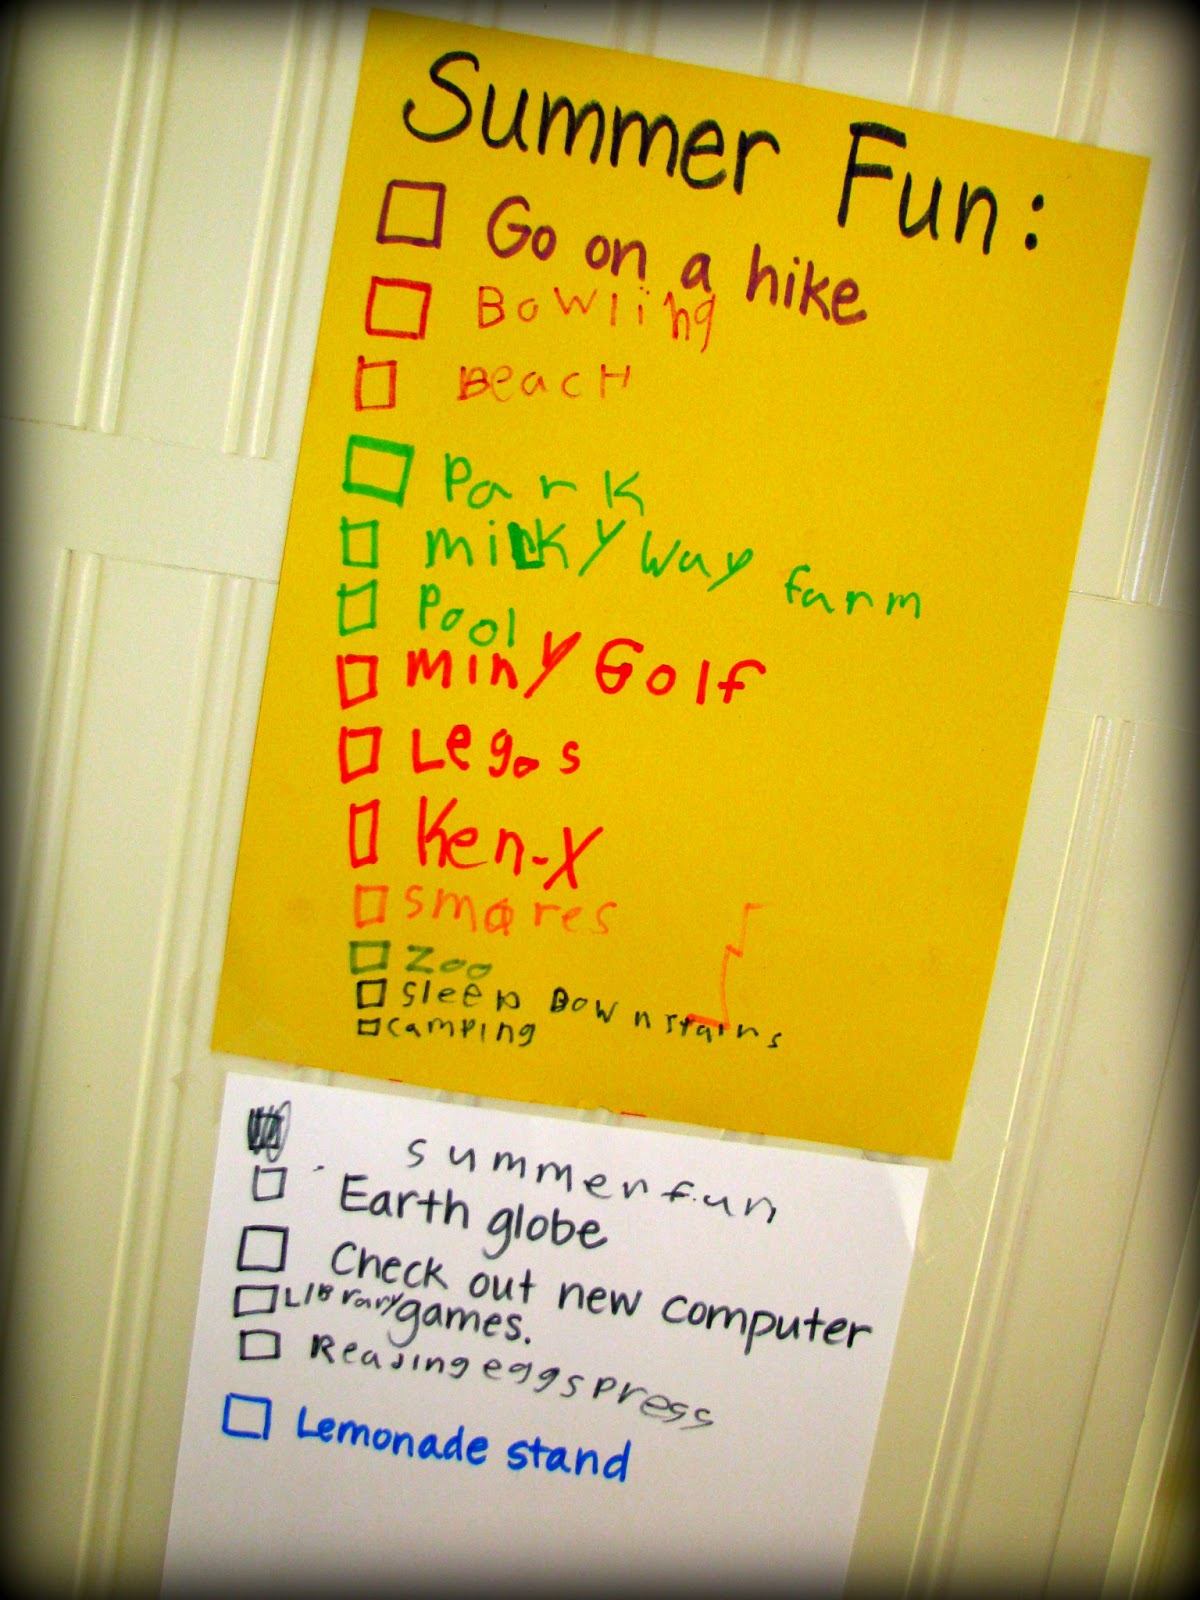 Summer Fun:
Go on a hike
Bowling
BeacH
Park
milky way farm
Pool
miny Golf
Legos
Ken-X
smores
Zoo
sleep Downstairs
camping
summer fun
Earth globe
Check out new computer
games.
LIBrary
Reading eggspress
Lemonade stand